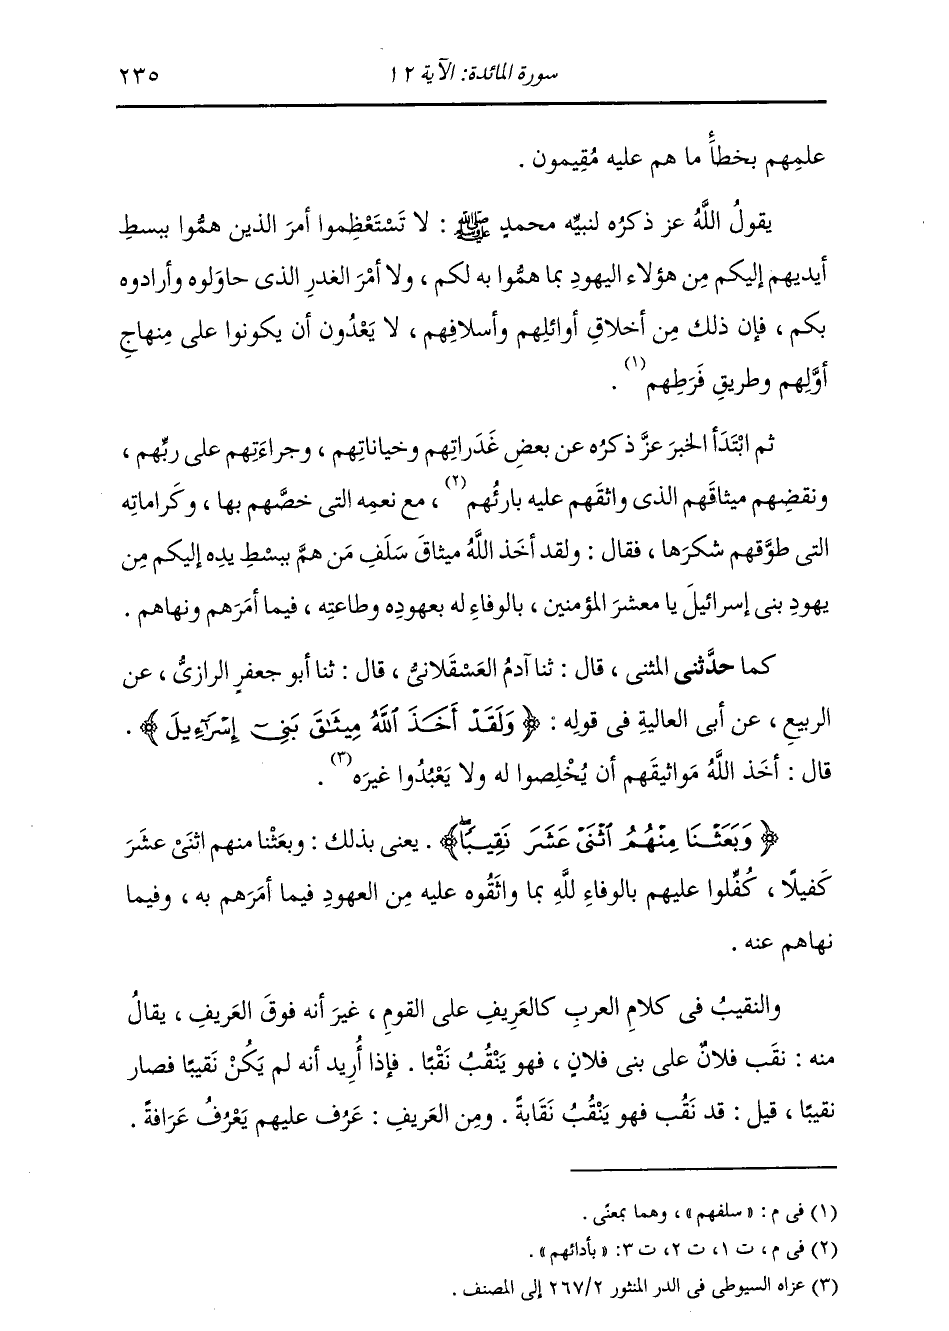 سورة المائدة: الآية ١٢ ٢٣٥
علمِهم بخطأِ ما هم عليه مُقِيمون .
يقولُ اللَّهُ عز ذكرُه لنبيِّه محمدٍ ﷺ : لا تَسْتَعْظِموا أمرَ الذين همُّوا ببسطِ
أيديهم إليكم مِن هؤلاء اليهودِ بما همُّوا به لكم ، ولا أمْرَ الغدرِ الذى حاوَلوه وأرادوه
بكم ، فإن ذلك مِن أخلاقِ أوائلِهم وأسلافِهم ، لا يَعْدُون أن يكونوا على مِنهاجِ
أوَّلِهم وطريقِ فَرَطِهم(١) .
ثم ابْتَدَأ الخبرَ عزَّ ذكرُه عن بعضِ غَدَراتِهم وخياناتِهم ، وجراءَتِهم على ربِّهم ،
ونقضِهم ميثاقَهم الذى واثقَهم عليه بارئُهم(٢) ، مع نعمِه التى خصَّهم بها ، وكَراماتِه
التى طوَّقهم شكرَها ، فقال : ولقد أخَذ اللَّهُ ميثاقَ سَلَفِ مَن همَّ ببسْطِ يدِه إليكم مِن
يهودِ بنى إسرائيلَ يا معشرَ المؤمنين ، بالوفاءِ له بعهودِه وطاعتِه ، فيما أمَرَهم ونهاهم .
كما حدَّثنى المثنى ، قال : ثنا آدمُ العَسْقلانىُّ ، قال : ثنا أبو جعفرٍ الرازىُّ ، عن
الربيعِ ، عن أبى العاليةِ فى قولِه : ﴿ وَلَقَدْ أَخَذَ ٱللَّهُ مِيثَٰقَ بَنِىٓ إِسْرَٰٓءِيلَ ﴾ .
قال : أخَذ اللَّهُ مَواثيقَهم أن يُخْلِصوا له ولا يَعْبُدوا غيرَه(٣) .
﴿ وَبَعَثْنَا مِنْهُمُ ٱثْنَىْ عَشَرَ نَقِيبًاۖ ﴾ . يعنى بذلك : وبعَثْنا منهم اثنَىْ عشَرَ
كَفيلًا ، كُفِّلوا عليهم بالوفاءِ للَّهِ بما واثَقُوه عليه مِن العهودِ فيما أمَرَهم به ، وفيما
نهاهم عنه .
والنقيبُ فى كلامِ العربِ كالعَرِيفِ على القومِ ، غيرَ أنه فوقَ العَريفِ ، يقالُ
منه : نقَب فلانٌ على بنى فلانٍ ، فهو يَنْقُبُ نَقْبًا . فإذا أُرِيد أنه لم يَكُنْ نَقيبًا فصار
نقيبًا ، قيل : قد نَقُب فهو يَنْقُبُ نَقَابةً . ومِن العَريفِ : عَرُف عليهم يَعْرُفُ عَرَافةً .
(١) فى م : « سلفهم » ، وهما بمعنًى .
(٢) فى م ، ت ١، ت ٢، ت ٣: « بأدائهم » .
(٣) عزاه السيوطى فى الدر المنثور ٢/ ٢٦٧ إلى المصنف .